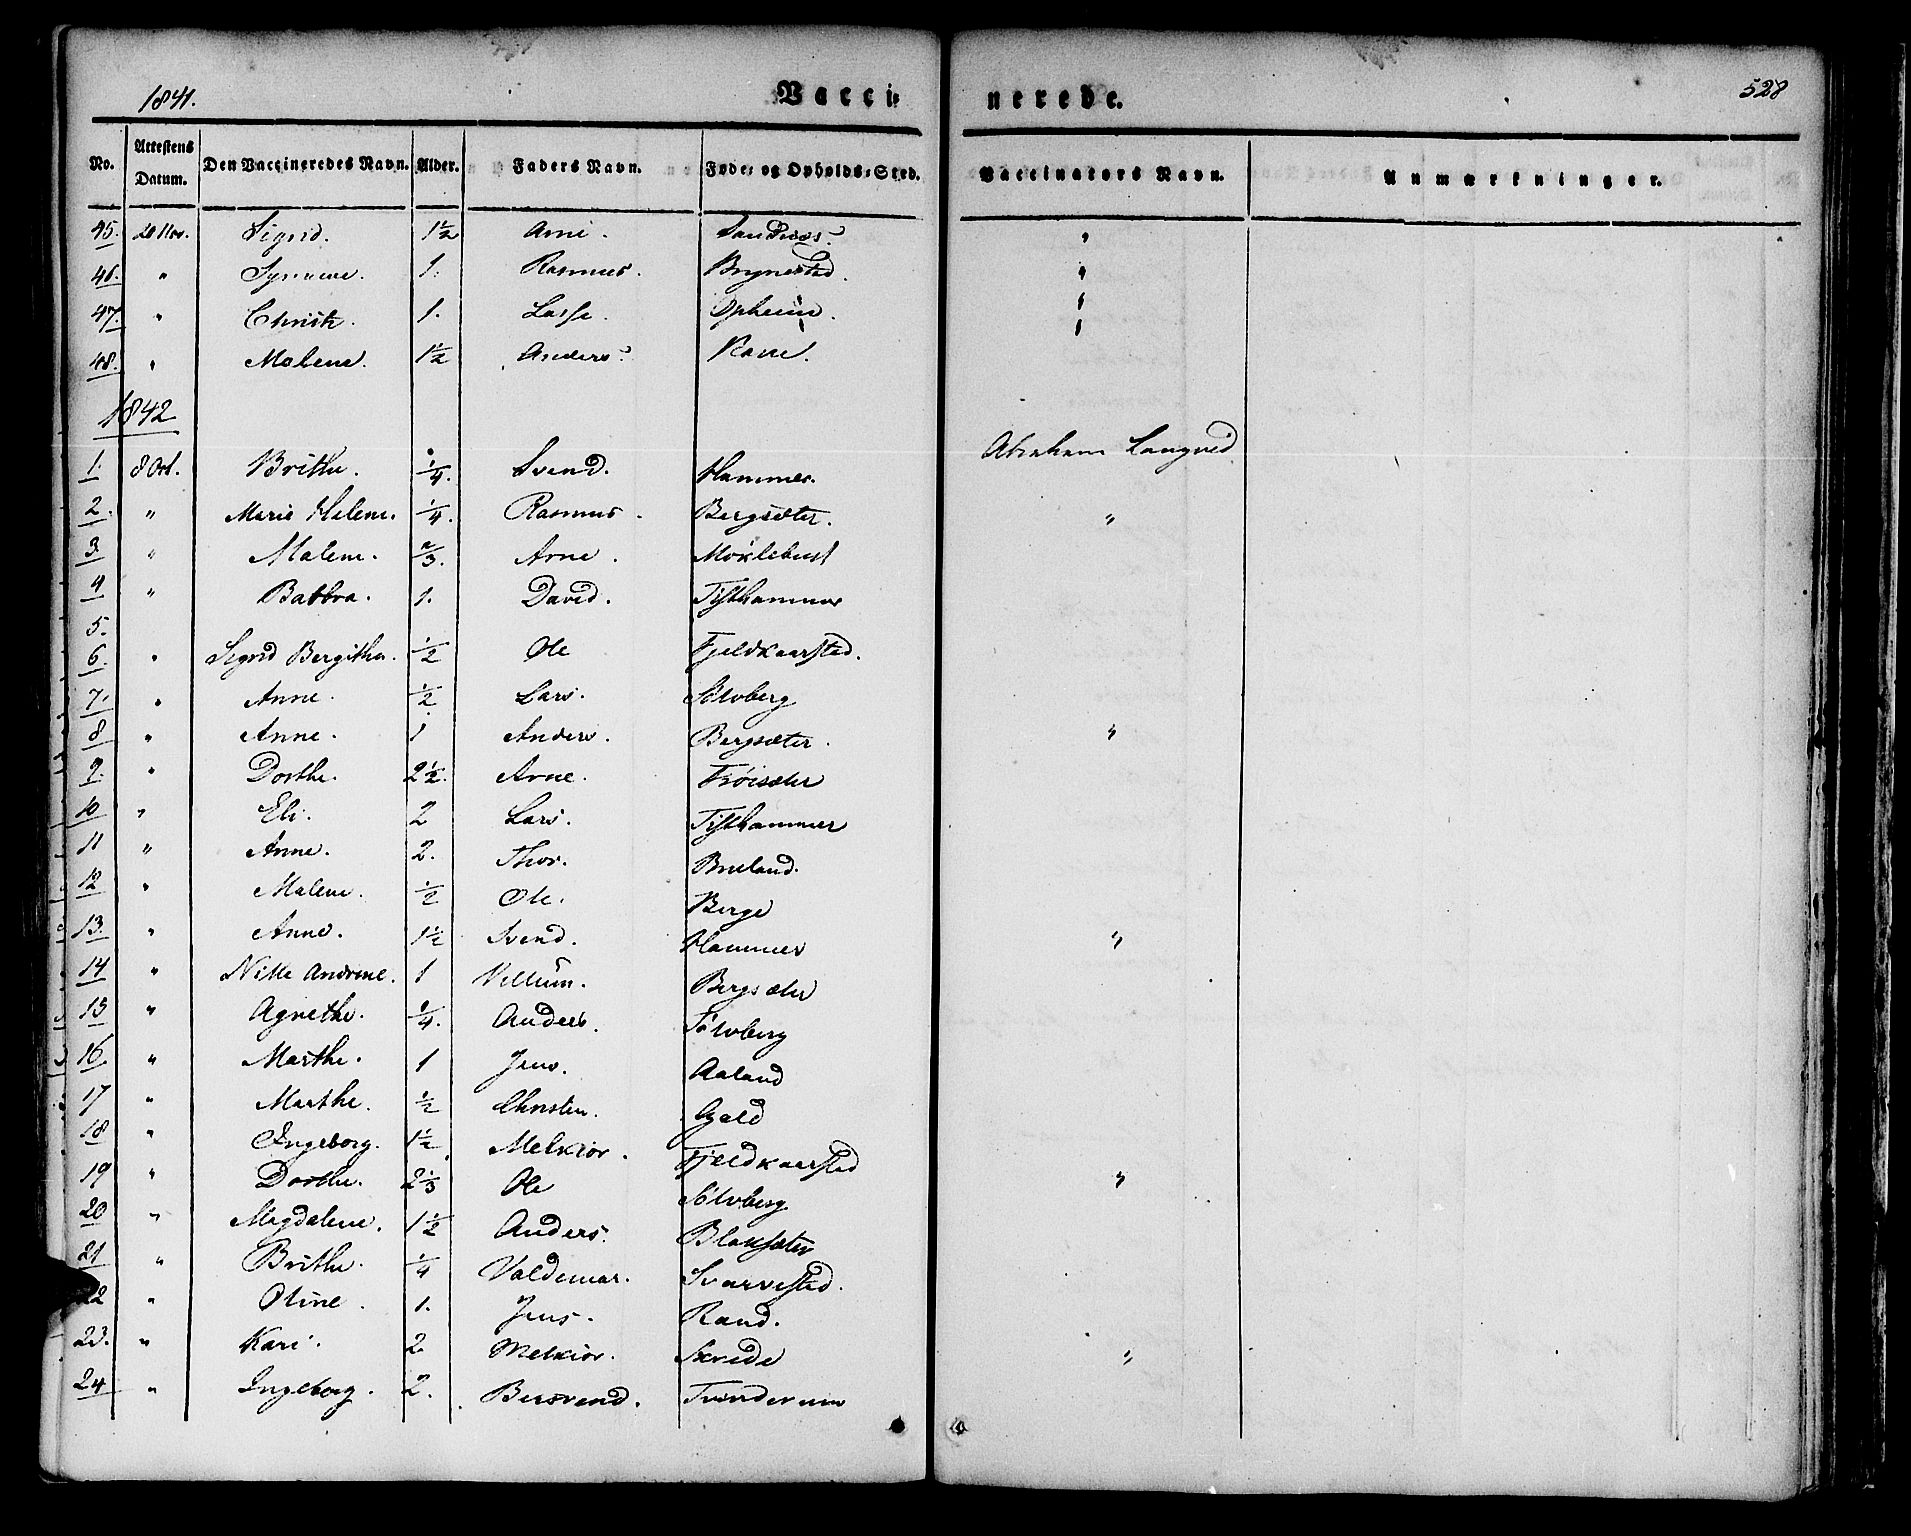 1841. Vacci= nerede. 528
No. Attestens Datum. Den Vaccineredes Navn. Alder. Faders Navn. Føde= og Opholds=Sted. Vaccinators Navn. Anmærkninger.
45. 20 Nov. Sigrid. 1½ Arne. Sandnæs. "
46. " Synneve. 1. Rasmus. Brynestad. "
47. " Christi. 1. Lasse. Opheim. "
48. " Malene. 1½ Anders. "
1842
1. 8 Oct. Brithe. ¼. Svend. Hammer. Abraham Langvid
2. " Marie Malene. ¼. Rasmus. Bergsæter. "
3. " Malene. ⅔. Arne. Möklebust
4 " Babbra. 1. David. Tisthammer
5.
6. " Sigrid Bergithe. ½ Ole Fjeldkaarstad.
7. " Anne. ½ Lars. Sölvberg
8 " Anne. 1 Anders. Bergsæter. "
9. " Dorthe. 2½. Arne. Fröisæter
10 " Eli. 2 Lars. Tisthammer
11 " Anne. 2. Thor. Breland.
12 " Malene. ½ Ole. Berge
13. " Anne. 1½ Svend. Hammer "
14 " Nille Andrine. 1 Villum. Bergsæter
15 " Agnethe. ¼. Anders. Sölvberg
16. " Marthe. 1 Jens. Aaland
17 " Marthe. ½ Christen. Gald
18 " Ingeborg. 1½ Melkior. Fjeldkaarstad
19 " Dorthe. 2⅓ Ole Sölvberg "
20 " Magdalene. 1½ Anders. Blaksæter
21 " Brithe. ¼ Valdemar. Svarvestad.
22 " Oline. 1. Jens. Rand.
23. " Kari. 2. Melkior. Skrede "
24 " Ingeborg. 2. Bersvend. Tvinderum